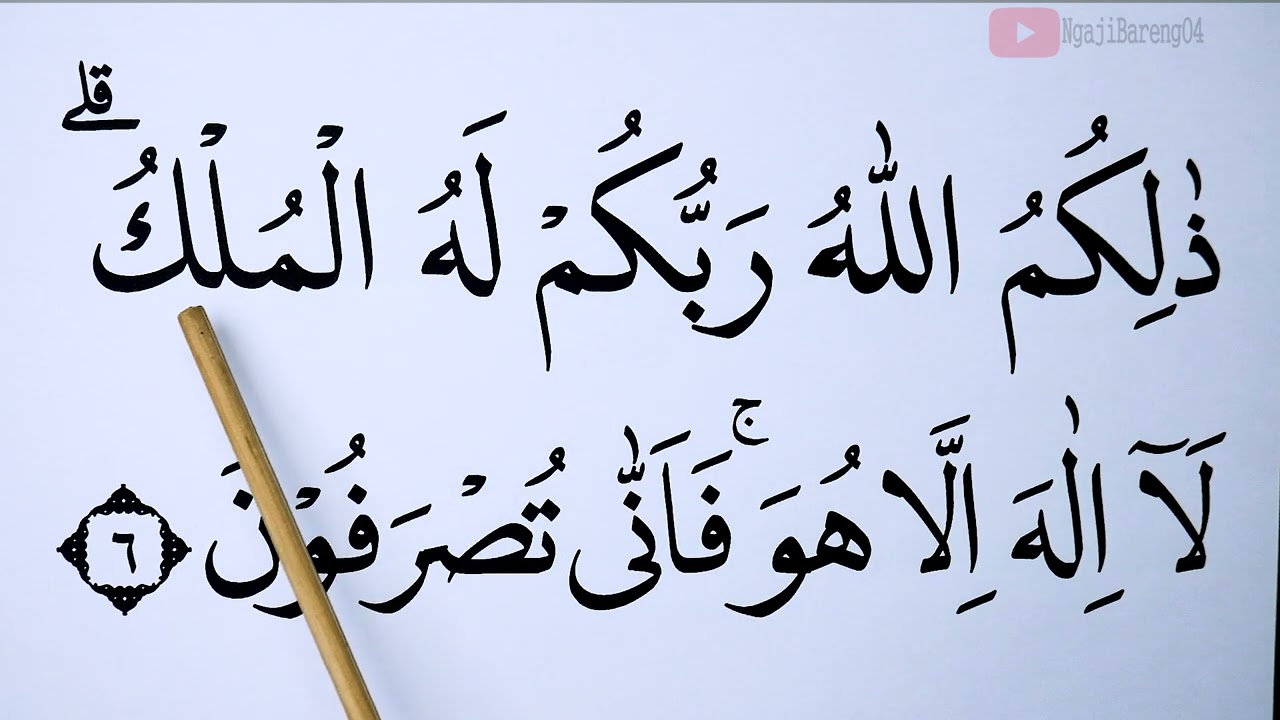 NgajiBareng04
ذٰلِكُمُ اللّٰهُ رَبُّكُمْ لَهُ الْمُلْكُ ۗ
لَآ اِلٰهَ اِلَّا هُوَ ۚ فَاَنّٰى تُصْرَفُوْنَ ٦